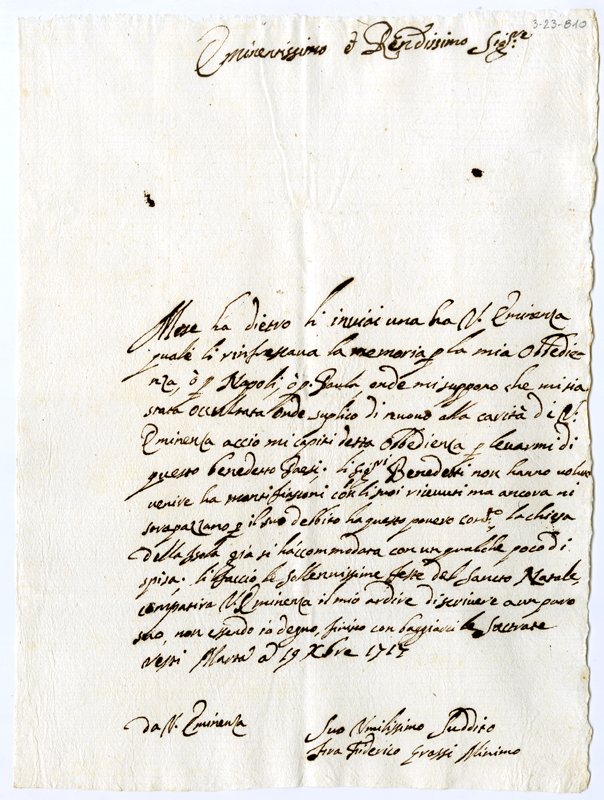 3-23-810
Eminentissimo è Ren.dissimo Sig.re
Mese ha dietro li inviai una ha V. Eminenza
quale li rinfrescava la memoria p la mia Obbedie-
nza, ò p Napoli, ò p Paula onde mi suppono che mi sia
stata occultata onde suplico di nuovo alla carità di V.
Eminenza accio mi capiti detta Obbedienza p levarmi di
questo benedetto Paesi: li sig.ri Benedetti non hanno volu
venire ha con li suoi ricevuti ma ancora mi
strapazzano p il suo debbito ha questo povero con.to la chiesa
della Isola già si hà accommodata con un qualche poco di
spisa: li faccio le sollennissime feste del Sancto Natale,
compatira V. Eminenza il mio ardire di scrivere a un par
suo, non essendo io degno, finisco con baggiarci le Sacrate
Vesti Marta a dì 19 Xbre 1715
Da V. Eminenza
Suo Umilissimo Suddito
Fra Fiderico Grossi Minimo